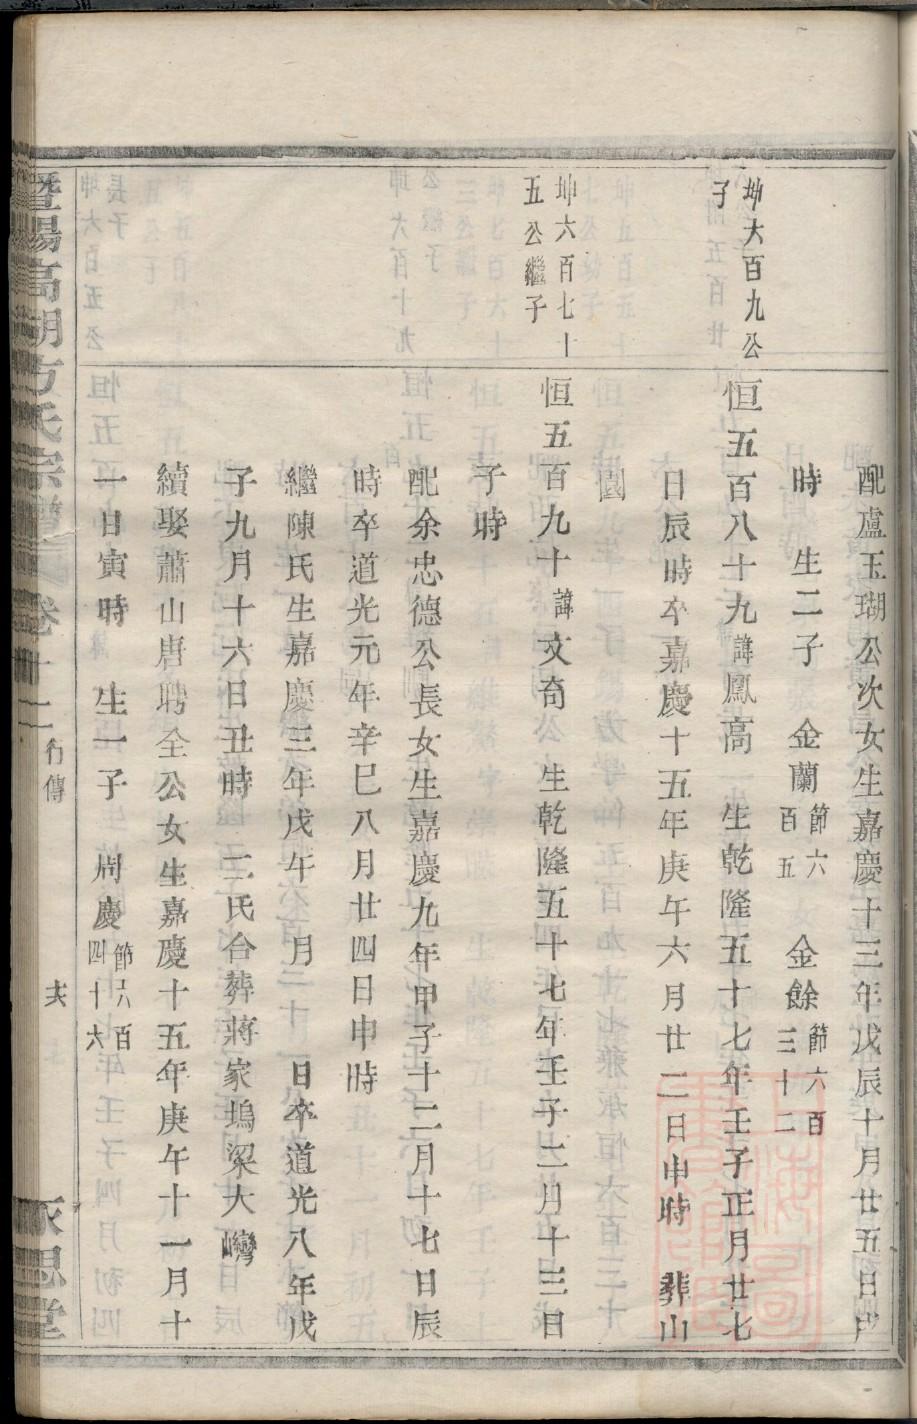 配盧玉瑚公次女生嘉慶十三年戊辰十月廿五日戌
時 生二子 金蘭節六百五 金餘節六百三十二
坤六百九公子
恒五百八十九諱鳳高 生乾隆五十七年壬子正月廿七
日辰時卒嘉慶十五年庚午六月廿二日申時 葬山
園
坤六百七十五公繼子
恒五百九十諱文奇 生乾隆五十七年壬子二月十三日
子時
配余忠德公長女生嘉慶九年甲子十二月十七日辰
時卒道光元年辛巳八月廿四日申時
繼陳氏生嘉慶三年戊午 月 日卒道光八年戊
子九月十六日丑時 二氏合葬蔣家塢梁大灣
續娶蕭山唐聘全公女生嘉慶十五年庚午十一月十
一日寅時 生一子 周慶節六百四十六
暨陽高湖方氏宗譜 卷十二 行傳 永思堂